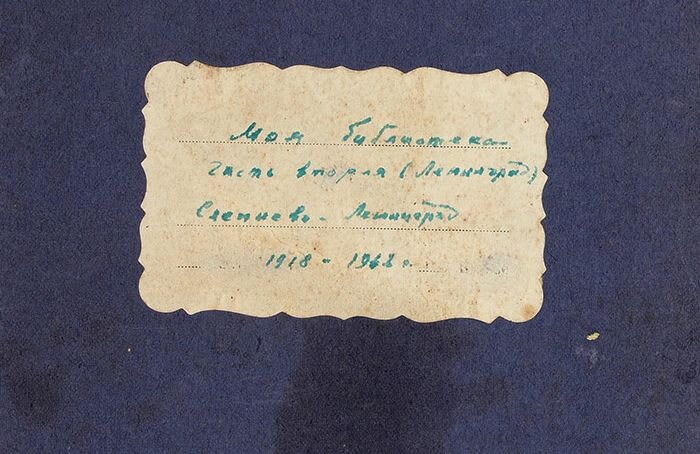 Моя библиотека
Часть вторая (Ленинград)
Слепнево - Ленинград
1918 - 1968 г.